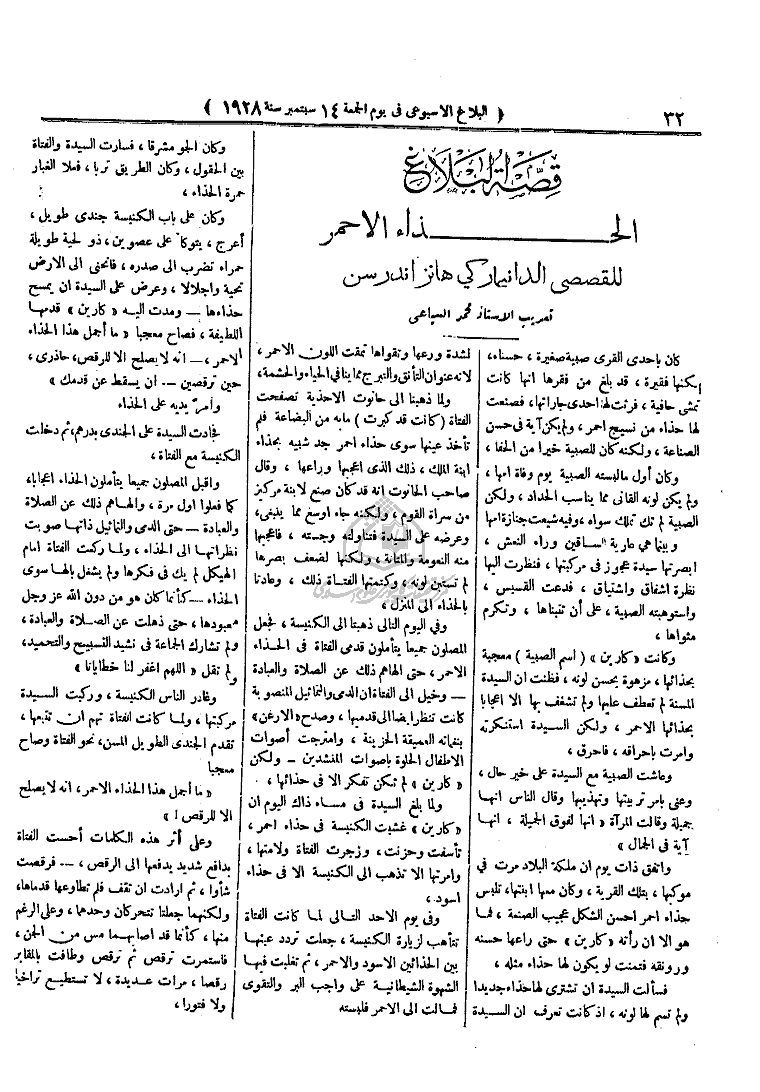 ٣٢
( البلاغ الاسبوعى فى يوم الجمعة ١٤ سبتمبر سنة ١٩٢٨ )
قصة البلاغ
الحـــــذاء الاحمر
للقصصى الدانيماركي هانز اندرسن
تعريب الاستاذ محمد السباعى
كان باحدى القرى صبية صغيرة ، حسناء،
لكنها فقيرة ، قد بلغ من فقرها انها كانت
تمشى حافية ، فرثت لها احدى جاراتها، فصنعت
لها حذاء من نسيج احمر ، ولم يكن آية فى حسن
الصناعة ، ولكنه كان للصبية خيرا من الحفا ،
وكان أول مالبسته الصبية يوم وفاة امها ،
ولم يكن لونه القانى مما يناسب الحداد ، ولكن
الصبية لم تك تملك سواه ، وفيه شيعت جنازة امها
و بينما هى عارية الساقين وراء النعش ،
ابصرتها سيدة عجوز فى مركبتها ، فنظرت اليها
نظرة اشفاق واشتياق ، فدعت القسيس ،
واستوهبته الصبية ، على أن تتبناها ، وتكرم
مثواها ،
وكانت « كارين » ( اسم الصبية ) معجبة
بحذائها ، مزهوة بحسن لونه ، فظنت ان السيدة
المسنة لم تعطف عليها ولم تشغف بها الا اعجابا
بحذائها الاحمر ، ولكن السيدة استنكرته
وامرت باحراقه ، فاحرق ،
وعاشت الصبية مع السيدة على خير حال ،
وعنى بامر تربيتها وتهذيبها وقال الناس انها
جميلة وقالت المرآة « انها لفوق الجميلة ، انها
آية فى الجمال »
واتفق ذات يوم ان ملكة البلاد مرت في
موكبها ، بتلك القرية ، وكان معها ابنتها، تلبس
حذاء احمر احسن الشكل عجيب الصنعة ، فما
هو الا ان رأته « كارين » حتى راعها حسنه
ورونقه فتمنت لو يكون لها حذاء مثله ،
فسألت السيدة ان تشترى لها حذاء جديدا
ولم تسم لها لونه ، اذ كانت تعرف ان السيدة
لشدة ورعها وتقواها تمقت اللون الاحمر ،
لانه عنوان التأنق والتبرج مما ينافي الحياء والحشمة،
ولما ذهبنا الى حانوت الاحذية تصفحت
الفتاة ( كانت قد كبرت ) مابه من البضاعة فلم
تأخذ عينها سوى حذاء احمر جد شبيه بحذاء
ابنة الملك ، ذلك الذى اعجبها وراعها ، وقال
صاحب الحانوت انه قد كان صنع لابنة مركيز
من سراة القوم ، ولكنه جاء اوسع مما ينبغى،
وعرضه على السيدة فتناولته وجسته ، فاعجبها
منه النعومة والمتانة ، ولكنها لضعف بصرها
لم تستبن لونه ، وكتمتها الفتاة ذلك ، وعادتا
بالحذاء الى المنزل ،
وفي اليوم التالى ذهبتا الى الكنيسة ، فجعل
المصلون جميعا يتأملون قدمى الفتاة فى الحذاء
الاحمر ، حتى الهاهم ذلك عن الصلاة والعبادة
— وخيل الى الفتاة ان الدمى والتماثيل المنصوبة
كانت تنظر ايضا الى قدميها ، وصدح « الارغن »
بنغماته العميقة الحزينة ، وامتزجت أصوات
الاطفال الحلوة باصوات المنشدين – ولكن
« كارين » لم تكن تفكر الا فى حذائها ،
ولما بلغ السيدة فى مساء ذاك اليوم ان
« كارين » غشيت الكنيسة فى حذاء احمر ،
تأسفت وحزنت ، وزجرت الفتاة ولامتها ،
وامرتها الا تذهب الى الكنيسة الا فى حذاء
اسود ،
وفى يوم الاحد التالى لما كانت الفتاة
تتأهب لزيارة الكنيسة ، جعلت تردد عينها
بين الحذائين الاسود والاحمر ، ثم تغلبت فيها
الشهوة الشيطانية على واجب البر والتقوى
فمالت الى الاحمر فلبسته
وكان الجو مشرقا ، فسارت السيدة والفتاة
بين الحقول ، وكان الطريق تربا ، فملا الغبار
حمرة الحذاء ،
وكان على باب الكنيسة جندى طويل ،
أعرج ، يتوكأ على عصوين ، ذو لحية طويلة
حمراء تضرب الى صدره ، فانحنى الى الارض
تحية واجلالا ، وعرض على السيدة ان يمسح
حذاءها — ومدت اليه « كارين » قدمها
اللطيفة ، فصاح معجبا « ما أجمل هذا الحذاء
الاحمر ، — انه لا يصلح الا للرقص ، حاذرى ،
حين ترقصين — ان يسقط عن قدمك »
وأمر يديه على الحذاء
فجادت السيدة على الجندى بدرهم، ثم دخلت
الكنيسة مع الفتاة ،
واقبل المصلون جميعا يتأملون الحذاء اعجابا،
كما فعلوا اول مرة ، والهاهم ذلك عن الصلاة
والعبادة — حتى الدمى والتماثيل ذاتها صوبت
نظراتها الى الحذاء ، ولما ركعت الفتاة امام
الهيكل لم يك فى فكرها ولم يشغل بالها سوى
الحذاء — كأنما كان هو من دون الله عز وجل
معبودها ، حتى ذهلت عن الصلاة والعبادة ،
ولم تشارك الجماعة فى نشيد التسبيح والتحميد،
ولم تقل « اللهم اغفر لنا خطايانا »
وغادر الناس الكنيسة ، وركبت السيدة
مركبتها ، ولما كانت الفتاة تهم ان تتبعها ،
تقدم الجندى الطويل المسن، نحو الفتاة وصاح
معجبا
« ما أجمل هذا الحذاء الاحمر، انه لا يصلح
الا للرقص ! »
وعلى أثر هذه الكلمات أحست الفتاة
بدافع شديد يدفعها الى الرقص ، — فرقصت
شأوا ، ثم ارادت ان تقف فلم تطاوعها قدماها،
ولكنهما جعلتا تتحركان وحدهما ، وعلى الرغم
منها ، كأنما قد اصابهما مس من الجن ،
فاستمرت ترقص ثم ترقص وطافت بالمقابر
رقصا ، مرات عديدة ، لا تستطيع تراخيا
ولا فتورا ،